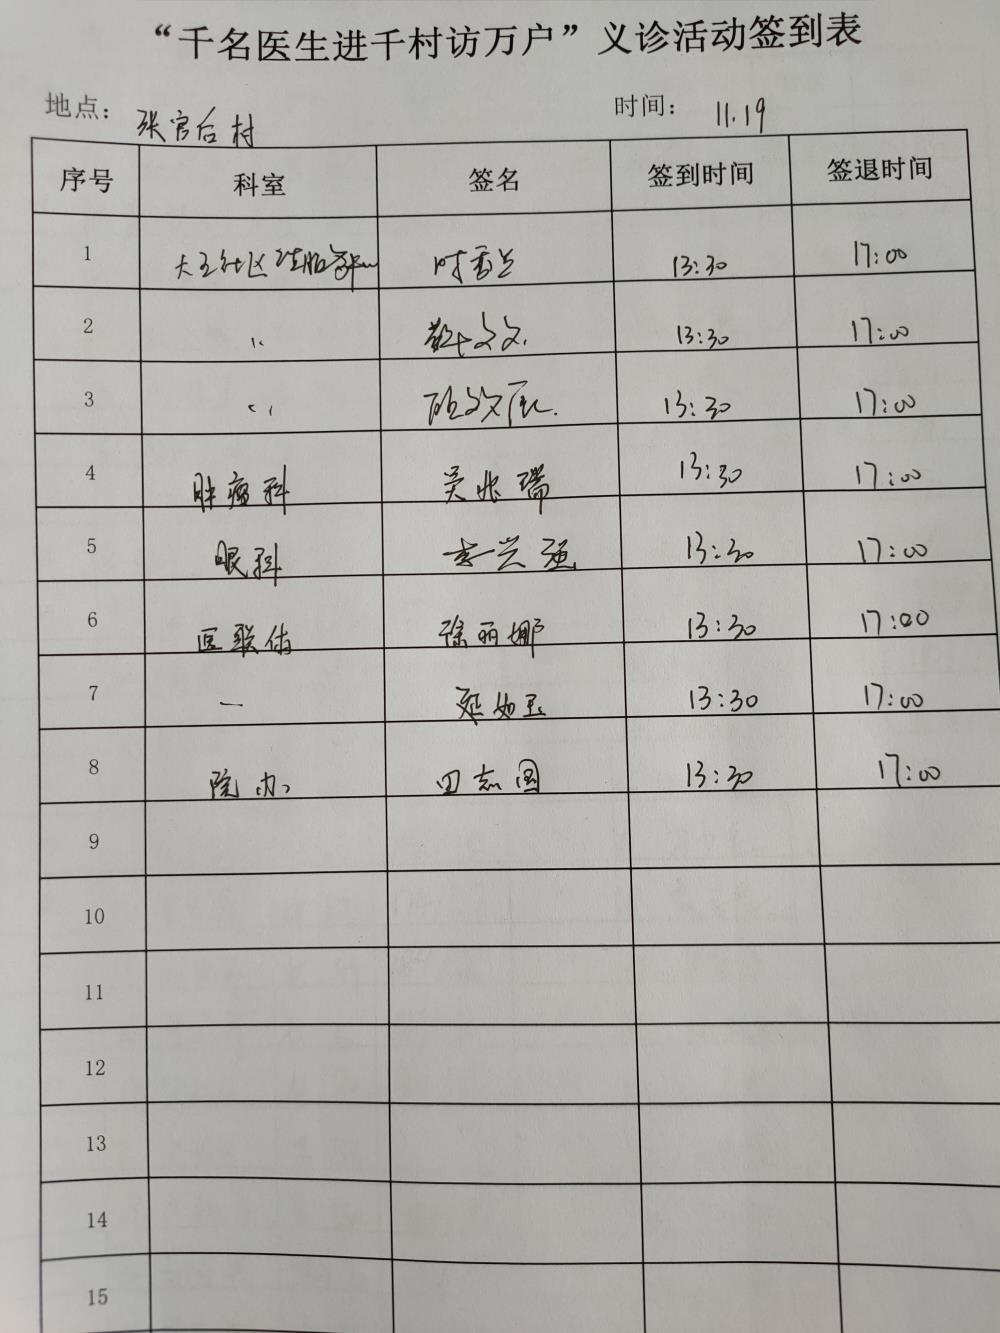 “千名医生进千村访万户”义诊活动签到表
地点： 张官后村 时间： 11.19
序号 科室 签名 签到时间 签退时间
1 大王社区 13:30 17:00
2 〃 文文 13:30 17:00
3 〃 13:30 17:00
4 肿瘤科 吴兆瑞 13:30 17:00
5 眼科 李兴强 13:30 17:00
6 医联体 徐丽娜 13:30 17:00
7 — 延如玉 13:30 17:00
8 院办 田志国 13:30 17:00
9
10
11
12
13
14
15